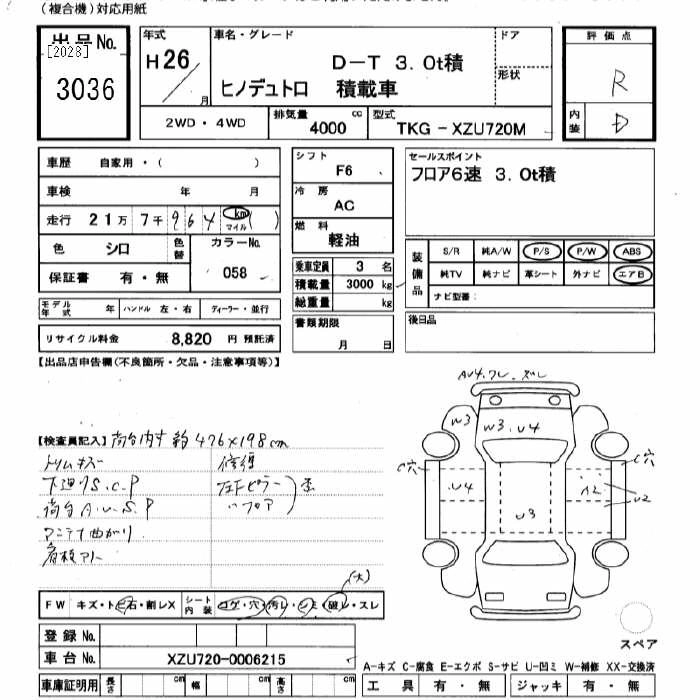 (複合機)対応用紙
出品No. [2028] 3036
年式 H26 月
車名・グレード D-T 3.0t積
ヒノデュトロ 積載車
ドア
形状
評価点 R
内装 D
2WD・4WD 排気量 4000 cc 型式 TKG-XZU720M
車歴 自家用・( )
車検 年 月
走行 21万 7千 964 km マイル ( )
色 シロ 色替 カラーNo. 058
保証書 有・無
シフト F6
冷房 AC
燃料 軽油
乗車定員 3 名
積載量 3000 kg
総重量 kg
セールスポイント
フロア6速 3.0t積
装備品 S/R 純A/W P/S P/W ABS
純TV 純ナビ 革シート 外ナビ エアB
ナビ型番:
モデル年式 年 ハンドル 左・右 ディーラー・並行
リサイクル料金 8,820 円 預託済
書類期限 月 日
後日品
【出品店申告欄(不良箇所・欠品・注意事項等)】
【検査員記入】荷台内寸 約 476×198cm
トリムキズ 修復
下廻りS.C.P 左Fピラー
荷台A.U.S.P 〃フロア
アンテナ曲がり
看板アト
W3 W3.U4
C穴 U4 U3 A2 U2 C穴
(大)
FW キズ・トビ石・割レX シート内装 コゲ・穴・汚レ・シミ・破レ・スレ
登録No.
車台No. XZU720-0006215
スペア
A-キズ C-腐食 E-エクボ S-サビ U-凹ミ W-補修 XX-交換済
車庫証明用 長さ cm 幅 cm 高さ cm 工具 有・無 ジャッキ 有・無